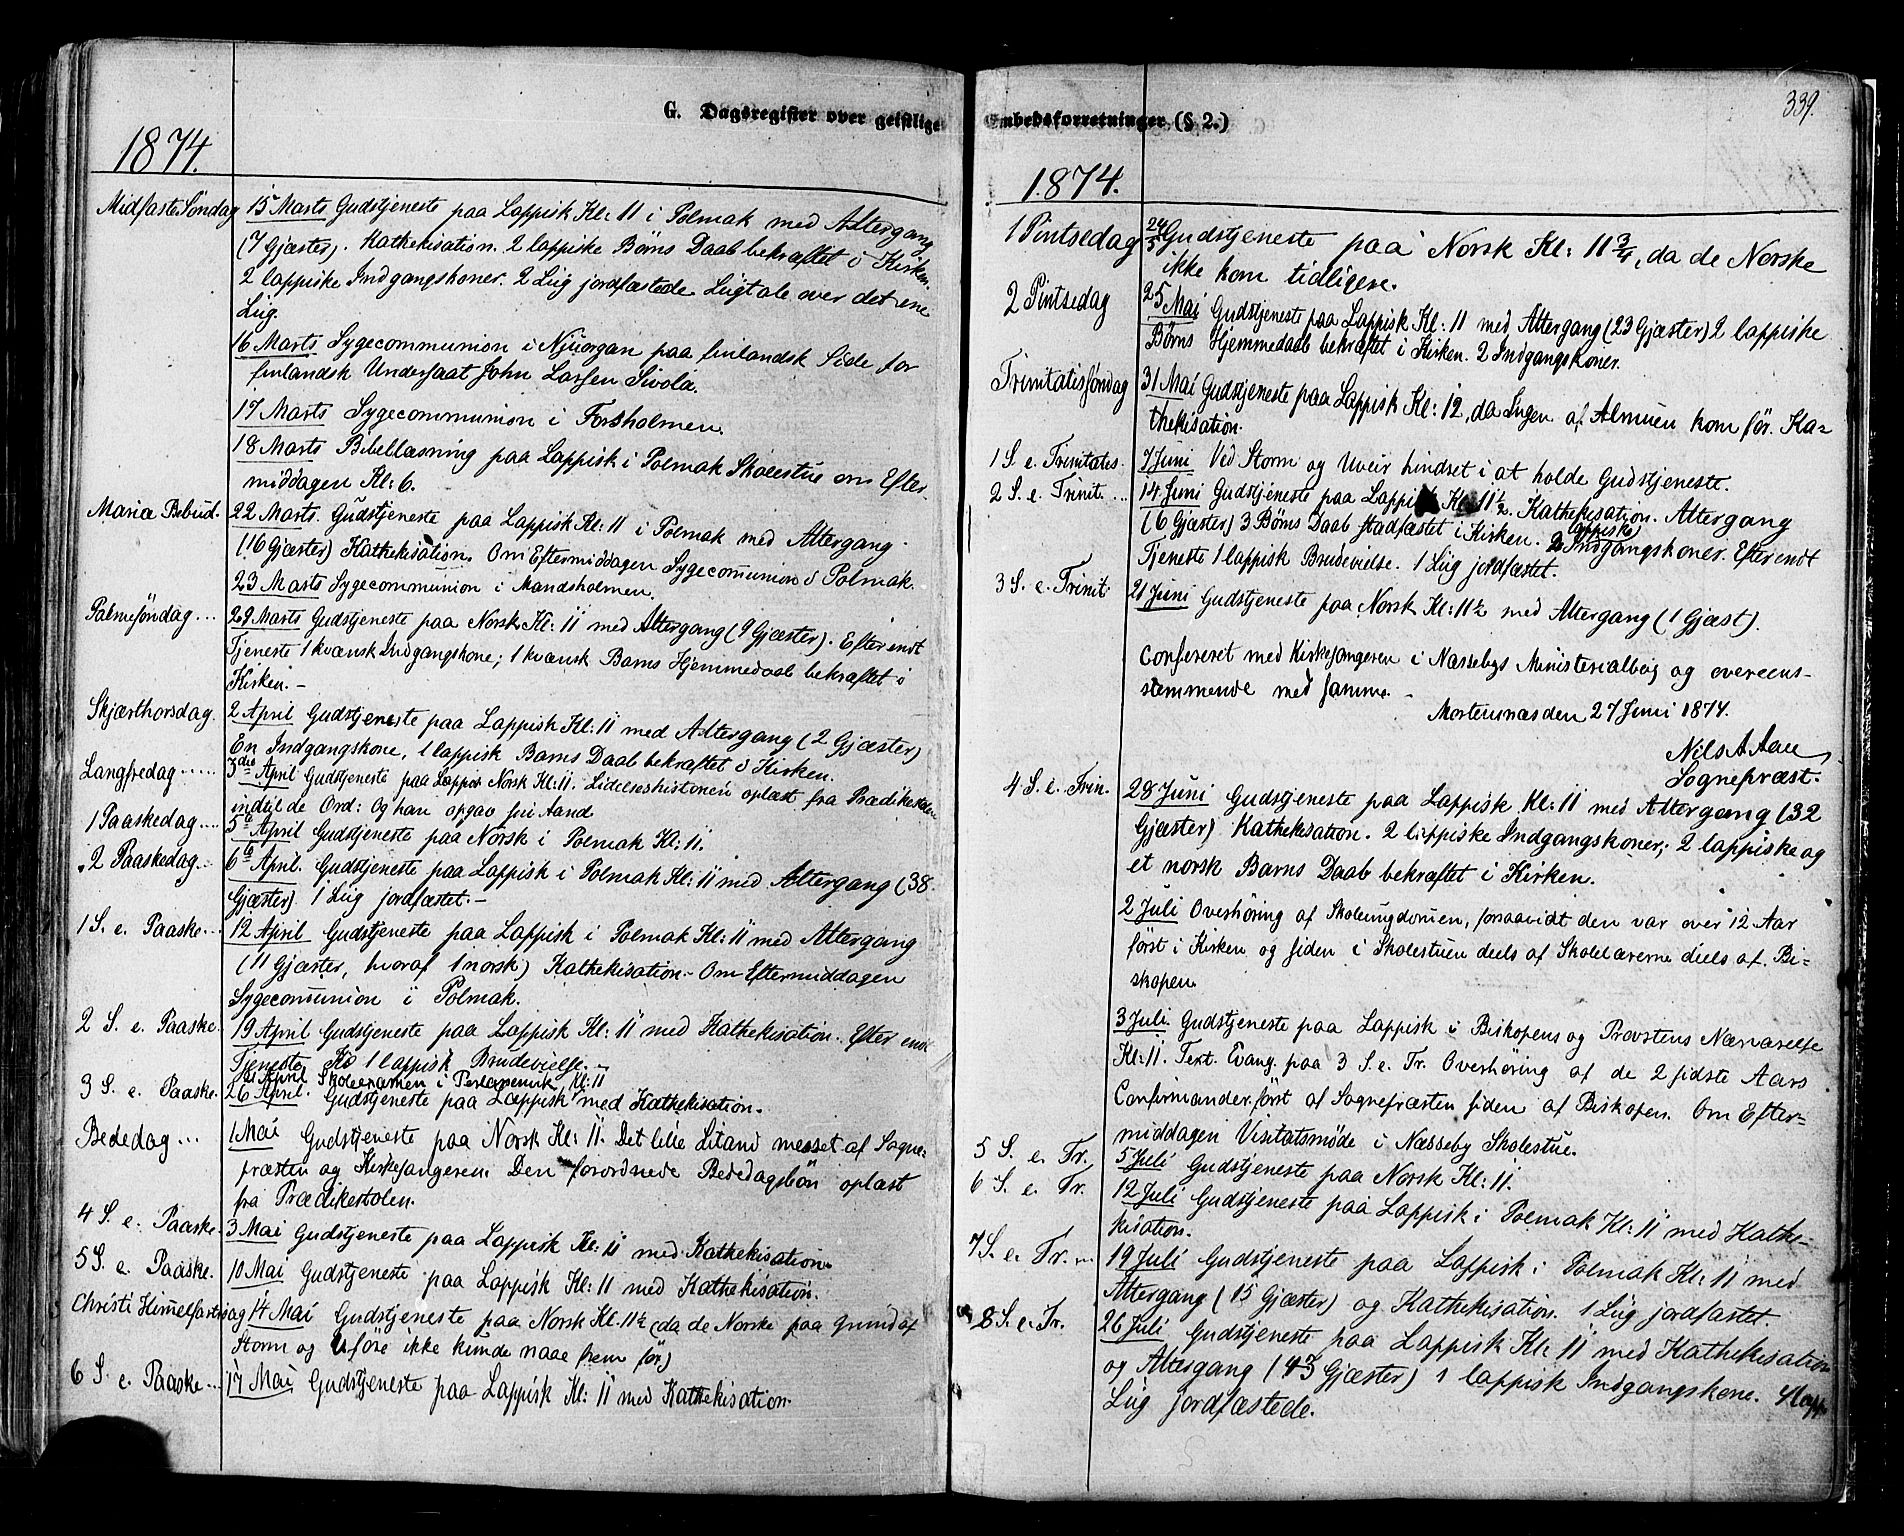 G. Dagsregister over geistlige
1874.
Midfaste Søndag 15 Marts Gudstjeneste paa Lappisk Kl: 11 i Polmak med Altergang
(7 Gjæster). Kathekisation. 2 lappiske Børns Daab bekræftet i Kirken.
2 lappiske Indgangskoner. 2 Liig jordfæstede Liigtale over det ene
Liig.
16 Marts Sygecommunion i Njuorgan paa finlandsk Side for
finlandsk Undersaat John Larsen Sivola.
17 Marts Sygecommunion i Forsholmen.
18 Marts Bibellæsning paa Lappisk i Polmak Skolestue om Efter-
middagen Kl: 6.
Mariæ Bebud. 22 Marts. Gudstjeneste paa Lappisk Kl: 11 i Polmak med Altergang
(16 Gjæster) Kathekisation. Om Eftermiddagen Sygecomunion i Polmak.
23 Marts Sygecomunion i Mandsholmen.
Palmesøndag ... 29 Marts Gudstjeneste paa Norsk Kl: 11 med Altergang (9 Gjæster). Efter endt
Tjeneste 1 kvænsk Indgangskone; 1 kvænsk Barns Hjemmedaab bekræftet i
Kirken. -
Skjærthorsdag. 2 April Gudstjeneste paa Lappisk Kl: 11 med Altergang (2 Gjæster)
En Indgangskone, 1 lappisk Barns Daab bekræftet i Kirken.
Langfredag ...... 3die April Gudstjeneste paa Norsk Kl: 11. Lidelseshistorien oplæst fra Prædikestolen
indtil de Ord: Og han opgav sin Aand
1 Paaskedag .... 5 April Gudstjeneste paa Norsk i Polmak Kl: 11.
2 Paaskedag .. 6 April. Gudstjeneste paa Lappisk i Polmak Kl: 11 med Altergang (38
Gjæster) 1 Liig jordfæstet. -
1 S. e. Paaske ... 12 April Gudstjeneste paa Lappisk i Polmak Kl: 11 med Altergang
(11 Gjæster, hvoraf 1 norsk) Kathekisation - Om Eftermiddagen
Sygecomunion i Polmak.
2 S. e. Paaske. 19 April Gudstjeneste paa Lappisk Kl: 11 med Kathekisation. Efter endt
Tjeneste 1 lappisk Brudevielse. -
April Skoleexamen i Kl: 11
3 S. e. Paaske. 26 April. Gudstjeneste paa Lappisk med Kathekisation.
Bededag ... 1 Mai Gudstjeneste paa Norsk Kl: 11. Det lille Litani messet af Sogne-
præsten og Kirkesangeren. Den forordnede Bededagsbøn oplæst
fra Prædikestolen.
4 S. e. Paaske.. 3 Mai Gudstjeneste paa Lappisk Kl: 11 med Kathekisation.
5 S. e. Paaske. 10 Mai Gudstjeneste paa Lappisk Kl: 11 med Kathekisation.
Christi Himelfartsdag 14 Mai Gudstjeneste paa Norsk Kl. 11½ (da de Norske paa Grund af
Storm og Uføre ikke kunde naae frem før)
6 S. e. Paaske ... 17 Mai Gudstjeneste paa Lappisk Kl: 11 med Kathekisation.
Embedsforretninger (§ 2.)
339.
1874.
1 Pintsedag 24/5 Gudstjeneste paa Norsk Kl: 11¾, da de Norske
ikke kom tidligere.
2 Pintsedag 25 Mai Gudstjeneste paa Lappisk Kl: 11 med Altergang (23 Gjæster) 2 lappiske
Børns Hjemmedaab bekræftet i Kirken. 2 Indgangskoner.
Trinitatissøndag 31 Mai Gudstjeneste paa Lappisk Kl: 12, da Ingen af Almuen kom før. Ka-
thekisation.
1 S. e. Trinitatis. 7 Juni Ved Storm og Uveir hindret i at holde Gudstjeneste.
2 S. e. Trinit. ... 14 Juni Gudstjeneste paa Lappisk Kl: 11½. Kathekisation. Altergang
(6 Gjæster) 3 Børns Daab stadfæstet i Kirken. 2 lappiske Indgangskoner. Efter endt
Tjeneste 1 lappisk Brudevielse. 1 Liig jordfæstet.
3 S. e. Trinit. 21 Juni Gudstjeneste paa Norsk Kl: 11½ med Altergang (1 Gjæst).
Confereret med Kirkesangeren i Næssebys Ministerialbog og overeens-
stemmende med samme. -
Mortensnæs den 27 Juni 1874.
Nils A Aau
Sognepræst.
4 S. e. Trin. 28 Juni Gudstjeneste paa Lappisk Kl: 11 med Altergang (32
Gjæster) Kathekisation. 2 lappiske Indgangskoner; 2 lappiske og
et norsk Barns Daab bekræftet i Kirken.
2 Juli Overhøring af Skoleungdomen, forsaavidt den var over 12 Aar
først i Kirken og siden i Skolestuen deels af Skolelærerne deels af Bi-
skopen.
3 Juli. Gudstjeneste paa Lappisk i Biskopens og Provstens Nærværelse
Kl: 11. Text. Evang. paa 3 S. e. Tr. Overhøring af de 2 sidste Aars
Confirmander først af Sognepræsten siden af Biskopen. Om Efter-
middagen Visitatsmøde i Næsseby Skolestue.
5 S. e. Tr. 5 Juli Gudstjeneste paa Norsk Kl: 11.
6 S. e. Tr. 12 Juli Gudstjeneste paa Lappisk i Polmak Kl: 11 med Kathe-
kisation.
7 S. e. Tr. ... 19 Juli Gudstjeneste paa Lappisk i Polmak Kl: 11 med
Altergang (15 Gjæster) og Kathekisation. 1 Liig jordfæstet.
8 S. e. Tr. 26 Juli Gudstjeneste paa Lappisk Kl: 11 med Kathekisation
og Altergang (43 Gjæster) 1 lappisk Indgangskone. 4 lapp.
Liig jordfæstede.